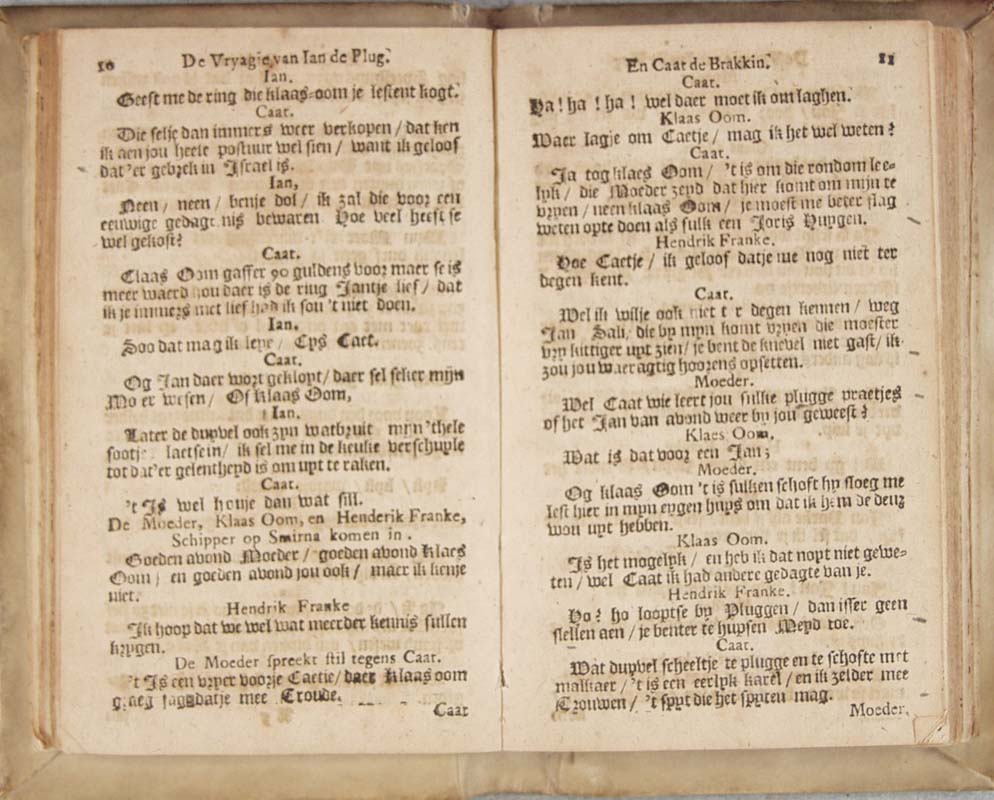 10 De Vryagie van Ian de Plug.
Ian.
Geeft me de ring die klaas-oom je lestent kogt.
Caat.
Die selje dan immers weer verkopen / dat ken
ik aen jou heele postuur wel sien / want ik geloof
dat'er gebrek in Israel is.
Ian,
Neen / neen / benje dol / ik zal die voor een
eeuwige gedagtenis bewaren Hoe veel heeft se
wel gekost?
Caat.
Claas Oom gaffer 90 guldens voor maer se is
meer waerd nou daer is de ring Jantje lief / dat
ik je immers niet lief had ik sou 't niet doen.
Ian.
Soo dat mag ik leye / Eys Caet.
Caat.
Og Jan daer wort geklopt / daer sel seker mijn
Mo er wesen / Of klaas Oom,
Ian.
Later de duyvel ook zyn watbruit mijn 'thele
sootje laetsein / ik sel me in de keuke verschuyle
tot dat'er gelentheyd is om uyt te raken.
Caat.
't Is wel houje dan wat stil.
De Moeder, Klaas Oom, en Henderik Franke,
Schipper op Smirna komen in.
Goeden avond Moeder / goeden avond Klaes
Oom / en goeden avond jou ook / maer ik kenje
niet.
Hendrik Franke
Ik hoop dat we wel wat meerder kennis sullen
krygen.
De Moeder spreekt stil tegens Caat.
't Is een vryer voorje Caetje / daer Klaas oom
graeg sagdatje mee Troude.
Caat
En Caat de Brakkin. 11
Caat.
Ha! ha! ha! wel daer moet ik om laghen.
Klaas Oom.
Waer lagje om Caetje / mag ik het wel weten?
Caat.
Ja tog klaes Oom / 't is om die rondom lee-
lyk / die Moeder zeyd dat hier komt om mijn te
vryen / neen klaas Oom / je moest me beter slag
weten opte doen als sulk een Joris Huygen.
Hendrik Franke.
Hoe Caetje / ik geloof datje me nog niet ter
degen kent.
Caat.
Wel ik wilje ook niet t r degen kennen / weg
Jan Sali, die by myn komt vryen die moester
vry kittiger uyt zien / je bent de knevel niet gast / ik
zou jou waeragtig hoorens opsetten.
Moeder.
Wel Caat wie leert jou sulke plugge praetjes
of het Jan van avond weer by jou geweest?
Klaes Oom.
Wat is dat voor een Jan;
Moeder.
Og klaas Oom 't is sulken schoft hy sloeg me
lest hier in myn eygen huys om dat ik hem de deur
wou uyt hebben.
Klaas Oom.
Is het mogelyk / en heb ik dat noyt niet gewe-
ten / wel Caat ik had andere gedagte van je.
Hendrik Franke.
Ho? ho looptse by Pluggen / dan isser geen
stellen aen / je benter te hupsen Meyd toe.
Caat.
Wat duyvel scheeltje te plugge en te schofte met
malkaer / 't is een eerlyk karel / en ik zelder mee
Trouwen / 't spyt die het spyten mag.
Moeder.